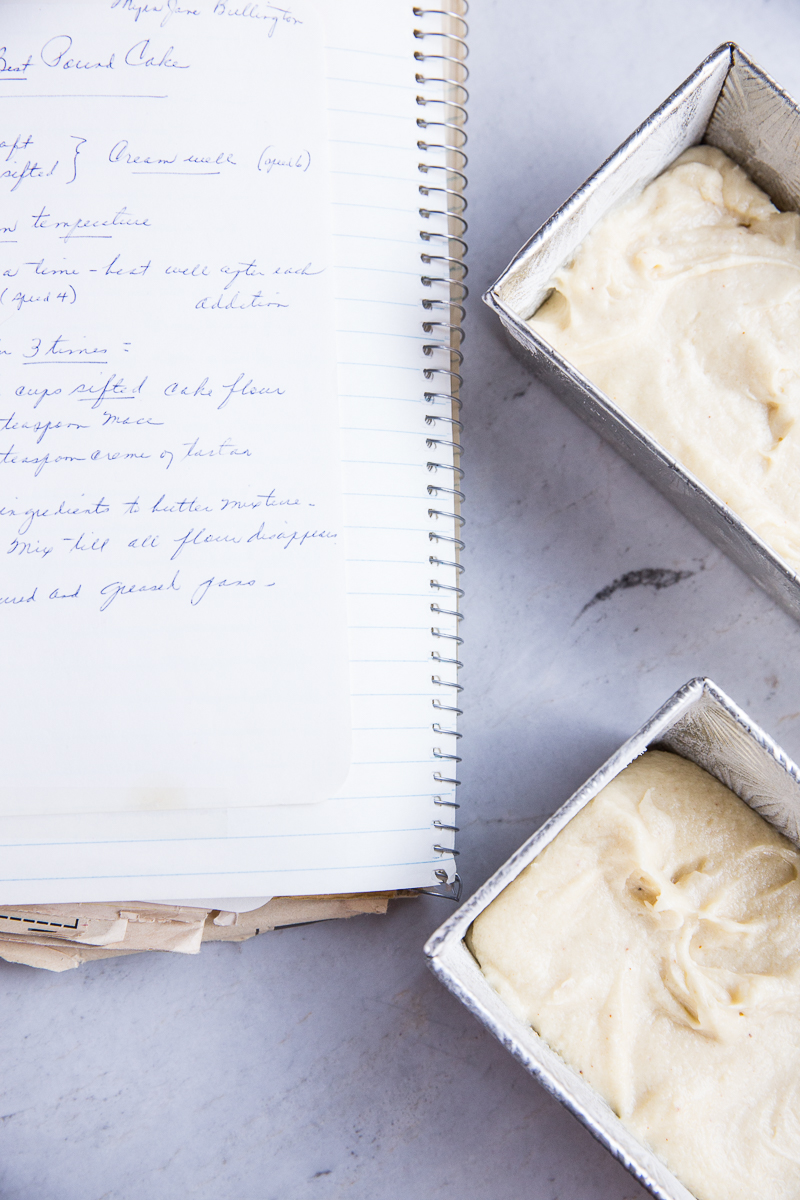 Myra Jane Bullington
Best Pound Cake
sifted } Cream well (speed 6)
temperature
a time - beat well after each
(speed 4) addition
3 times =
cups sifted cake flour
teaspoon Mace
teaspoon creme of tartar
ingredients to butter mixture -
Mix till all flour disappears
and greased pans -